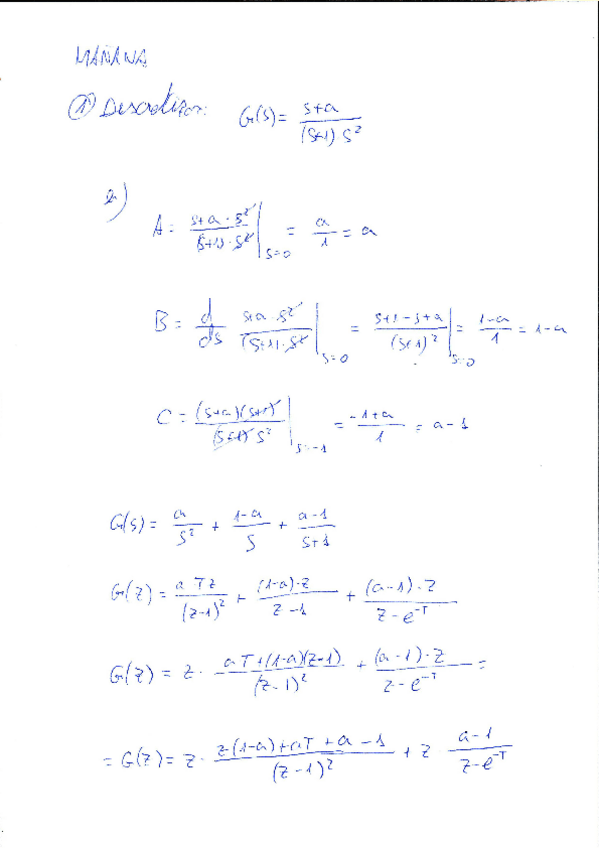 MAÑANA
① Discretizar: G(s) = (s+a)/((s+1) s²)
a)
A = (s+a · s²)/((s+1) · s²) |s=0 = a/1 = a
B = d/ds (s+a · s²)/((s+1) · s²) |s=0 = (s+1-s+a)/((s+1)²) |s=0 = (1-a)/1 = 1-a
C = (s+a)(s+1)/((s+1) s²) |s=-1 = (-1+a)/1 = a-1
G(s) = a/s² + (1-a)/s + (a-1)/(s+1)
G(z) = a Tz/(z-1)² + (1-a)·z/(z-1) + (a-1)·z/(z-e^-T)
G(z) = z · (aT+(1-a)(z-1))/(z-1)² + (a-1)·z/(z-e^-T) =
= G(z) = z · (z(1-a)+aT+a-1)/(z-1)² + z · (a-1)/(z-e^-T)